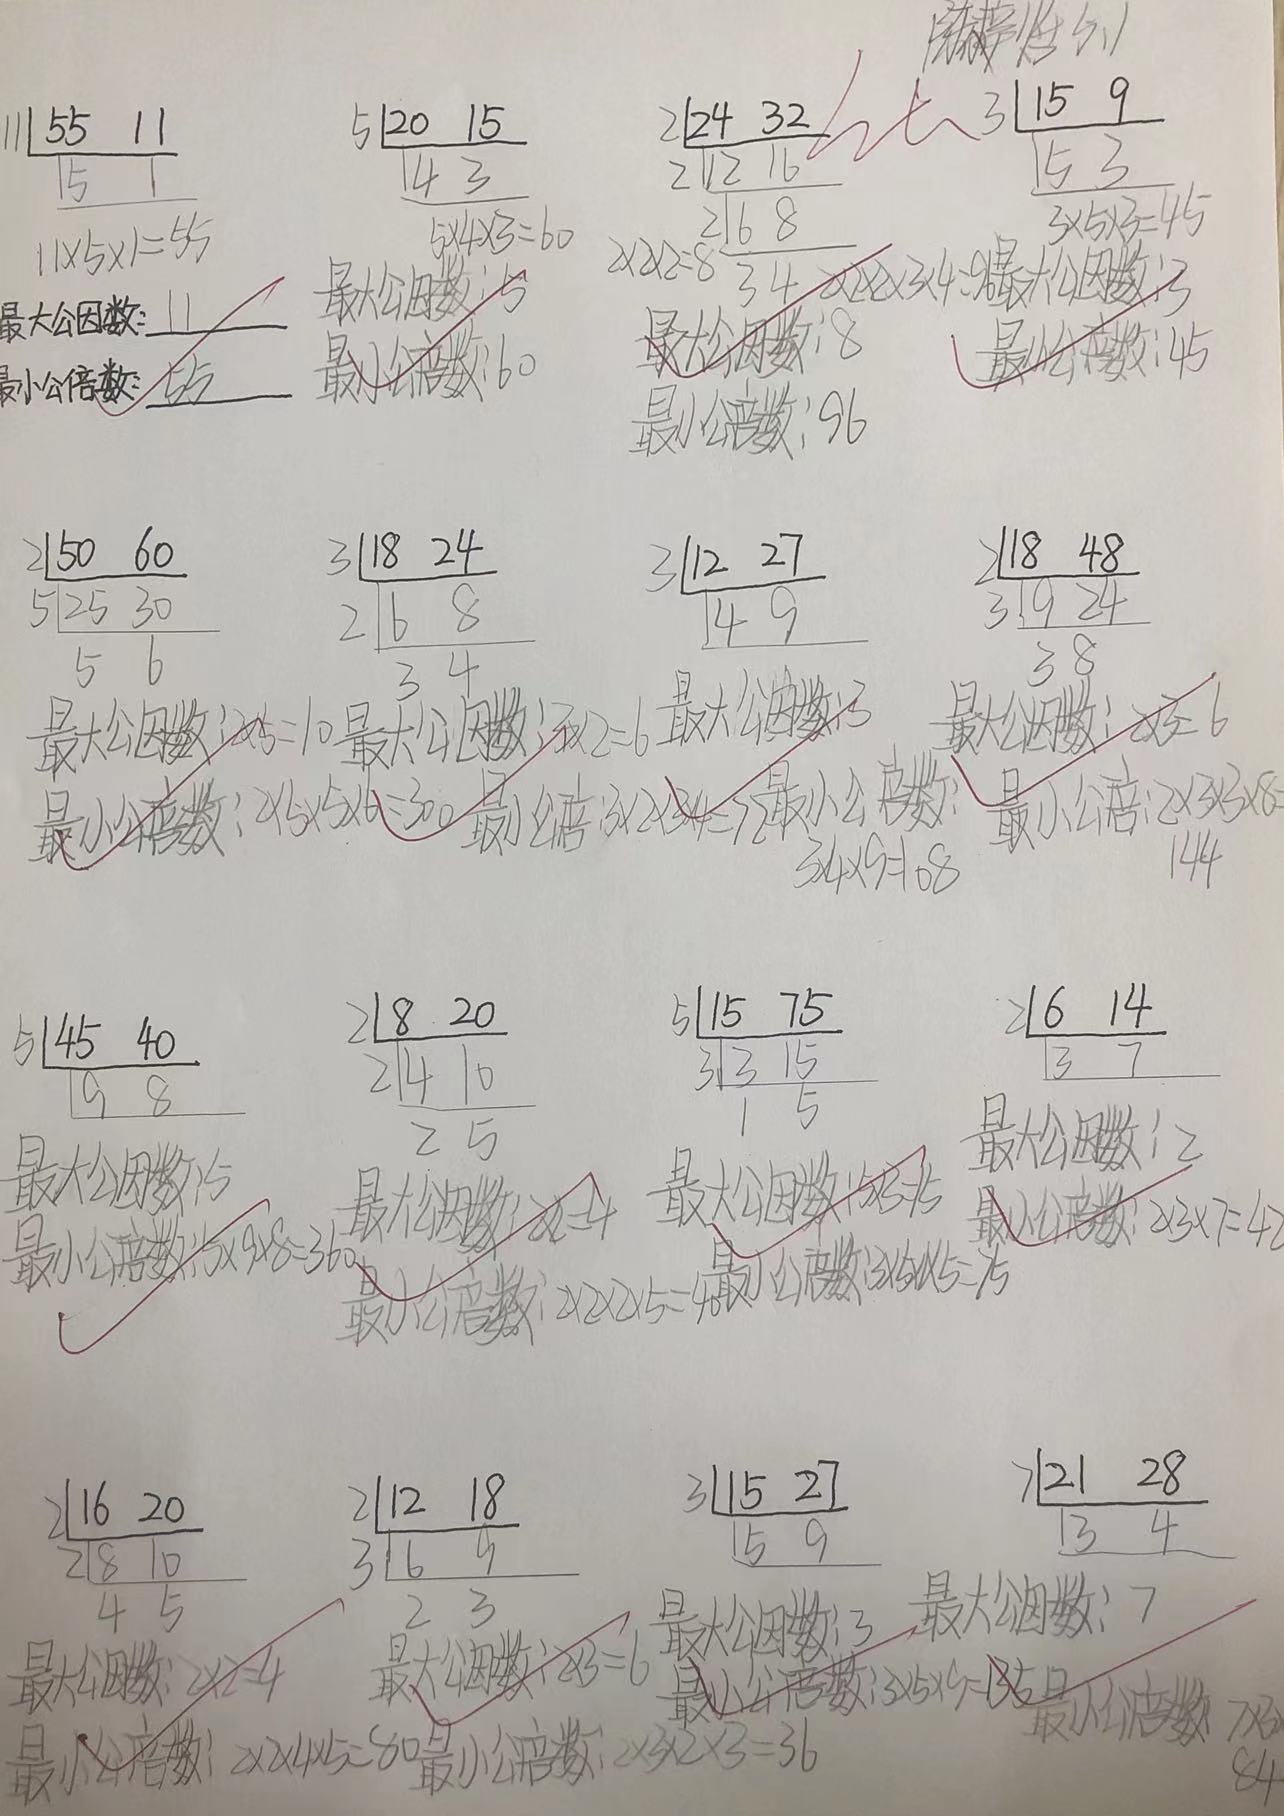 11 55 11
5 1
11×5×1=55
最大公因数: 11
最小公倍数: 55
5 20 15
4 3
5×4×3=60
最大公因数:5
最小公倍数:60
2 24 32
2 12 16
2 6 8
3 4
2×2×2=8
2×2×2×3×4=96
最大公因数:8
最小公倍数:96
3 15 9
5 3
3×5×3=45
最大公因数:3
最小公倍数:45
2 50 60
5 25 30
5 6
最大公因数:2×5=10
最小公倍数:2×5×5×6=300
3 18 24
2 6 8
3 4
最大公因数:3×2=6
最小公倍:3×2×3×4=72
3 12 27
4 9
最大公因数:3
最小公倍数:
3×4×9=108
2 18 48
3 9 24
3 8
最大公因数:2×3=6
最小公倍:2×3×3×8=
144
5 45 40
9 8
最大公因数:5
最小公倍数:5×9×8=360
2 8 20
2 4 10
2 5
最大公因数:2×2=4
最小公倍数:2×2×2×5=40
5 15 75
3 3 15
1 5
最大公因数:5×3=15
最小公倍数:3×5×1×5=75
2 6 14
3 7
最大公因数:2
最小公倍数:2×3×7=42
2 16 20
2 8 10
4 5
最大公因数:2×2=4
最小公倍数:2×2×4×5=80
2 12 18
3 6 9
2 3
最大公因数:2×3=6
最小公倍数:2×3×2×3=36
3 15 27
5 9
最大公因数:3
最小公倍数:3×5×9=135
7 21 28
3 4
最大公因数:7
最小公倍数 7×3×
84